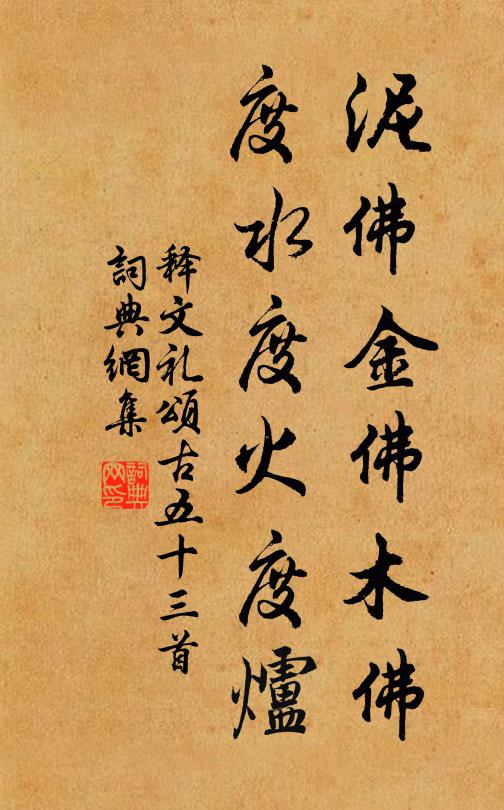 泥佛金佛木佛
度水度火度爐
释文礼頌古五十三首
詞典網集
詞典網印